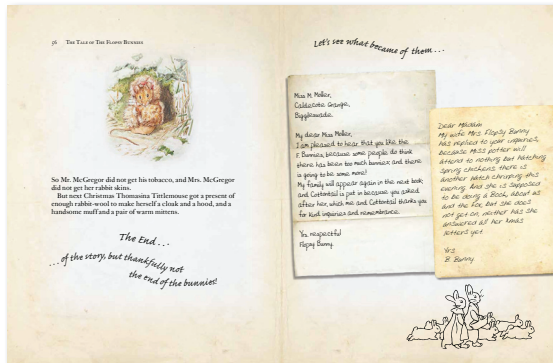 56 The Tale of The Flopsy Bunnies
So Mr. McGregor did not get his tobacco, and Mrs. McGregor
did not get her rabbit skins.
But next Christmas Thomasina Tittlemouse got a present of
enough rabbit-wool to make herself a cloak and a hood, and a
handsome muff and a pair of warm mittens.
The End...
...of the story, but thankfully not
the end of the bunnies!
Let's see what became of them...
Miss M. Moller,
Caldecote Grange,
Biggleswade.
My dear Miss Moller,
I am pleased to hear that you like the
F. Bunnies, because some people do think
there has been too much bunnies; and there
is going to be some more!
My family will appear again in the next book;
and Cottontail is put in because you asked
after her, which me and Cottontail thanks you
for kind inquiries and remembrance.
Yrs respectful
Flopsy Bunny.
Dear Madam
My wife Mrs Flopsy Bunny
has replied to your inquiries,
because Miss Potter will
attend to nothing but hatching
spring chickens, there is
another hatch chirping this
evening. And she is supposed
to be doing a Book, about us
and the Fox, but she does
not get on, neither has she
answered all her Xmas
letters yet
Yrs
B. Bunny